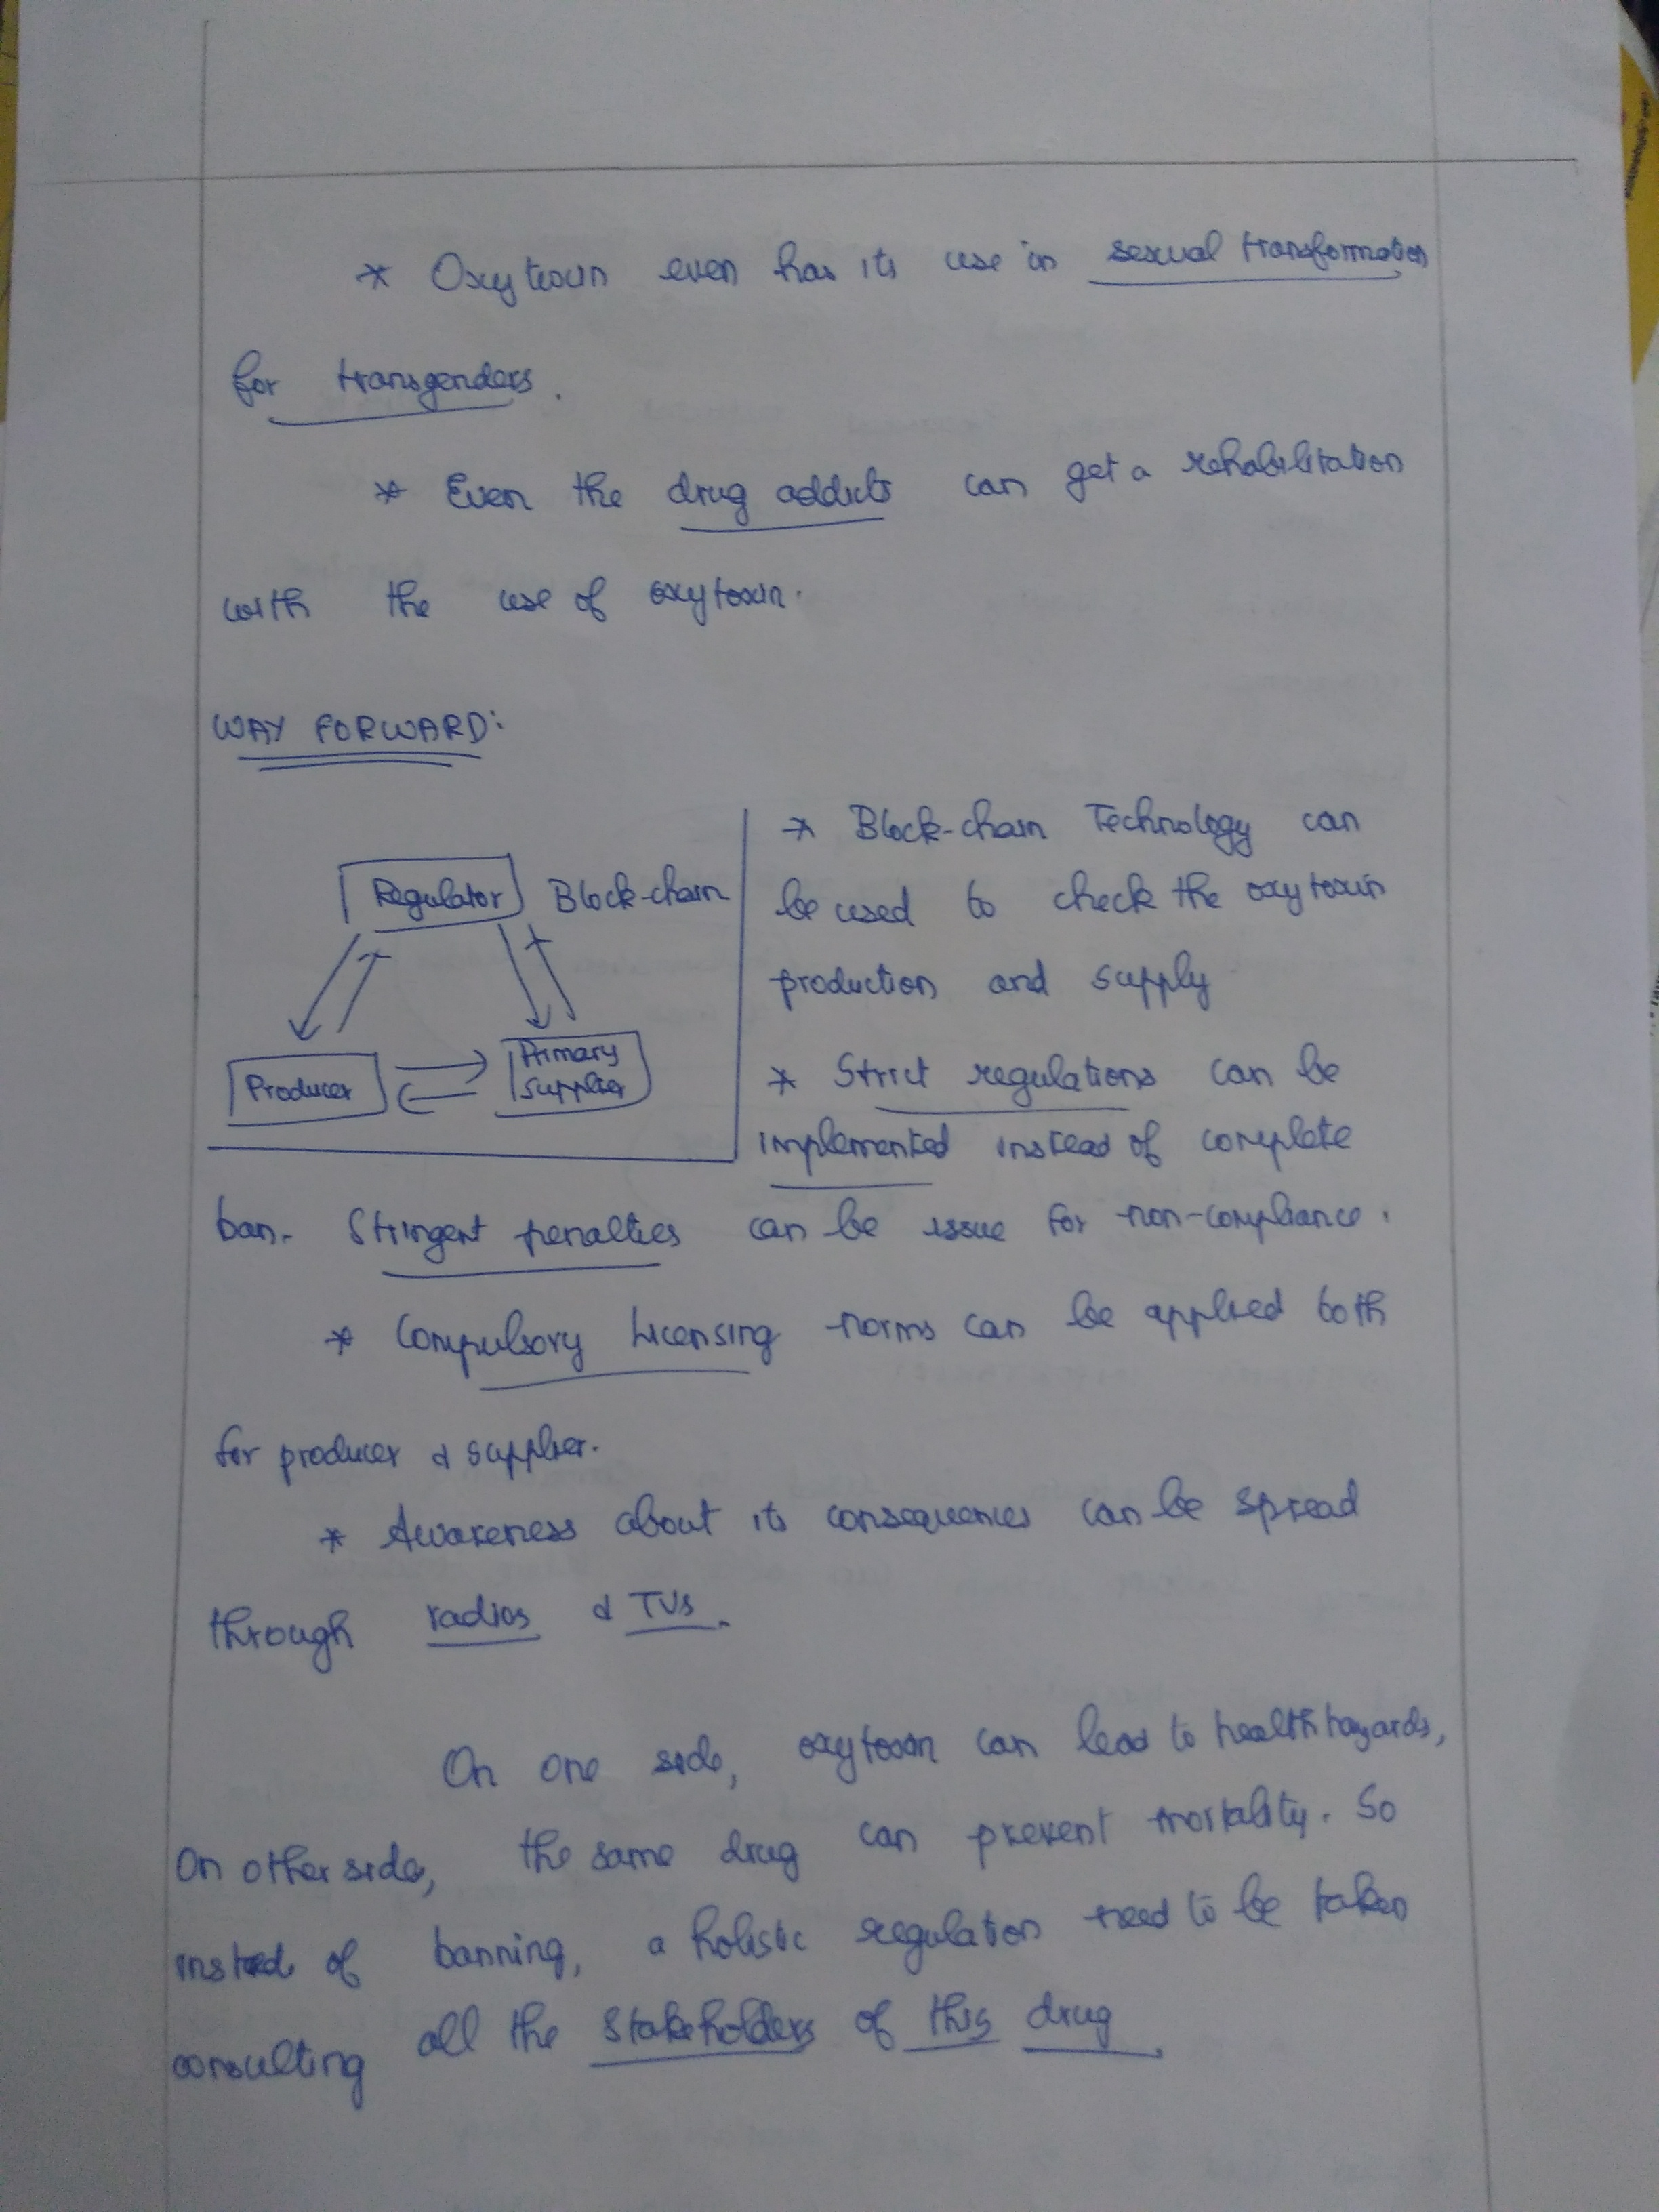 * Oxytoxin even has its use in sexual transformation
for transgenders.
* Even the drug addicts can get a rehabilitation
with the use of oxytoxin.
WAY FORWARD:
Regulator Block-chain
Producer
Primary
Supplier
* Block-chain Technology can
be used to check the oxytoxin
production and supply
* Strict regulations can be
implemented instead of complete
ban. Stringent penalties can be issue for non-compliance.
* Compulsory Licensing norms can be applied both
for producer & supplier.
* Awareness about its consequences can be spread
through radios & TVs.
On one side, oxytoxin can lead to health hazards,
On other side, the same drug can prevent mortality. So
instead of banning, a holistic regulation need to be taken
consulting all the stakeholders of this drug.